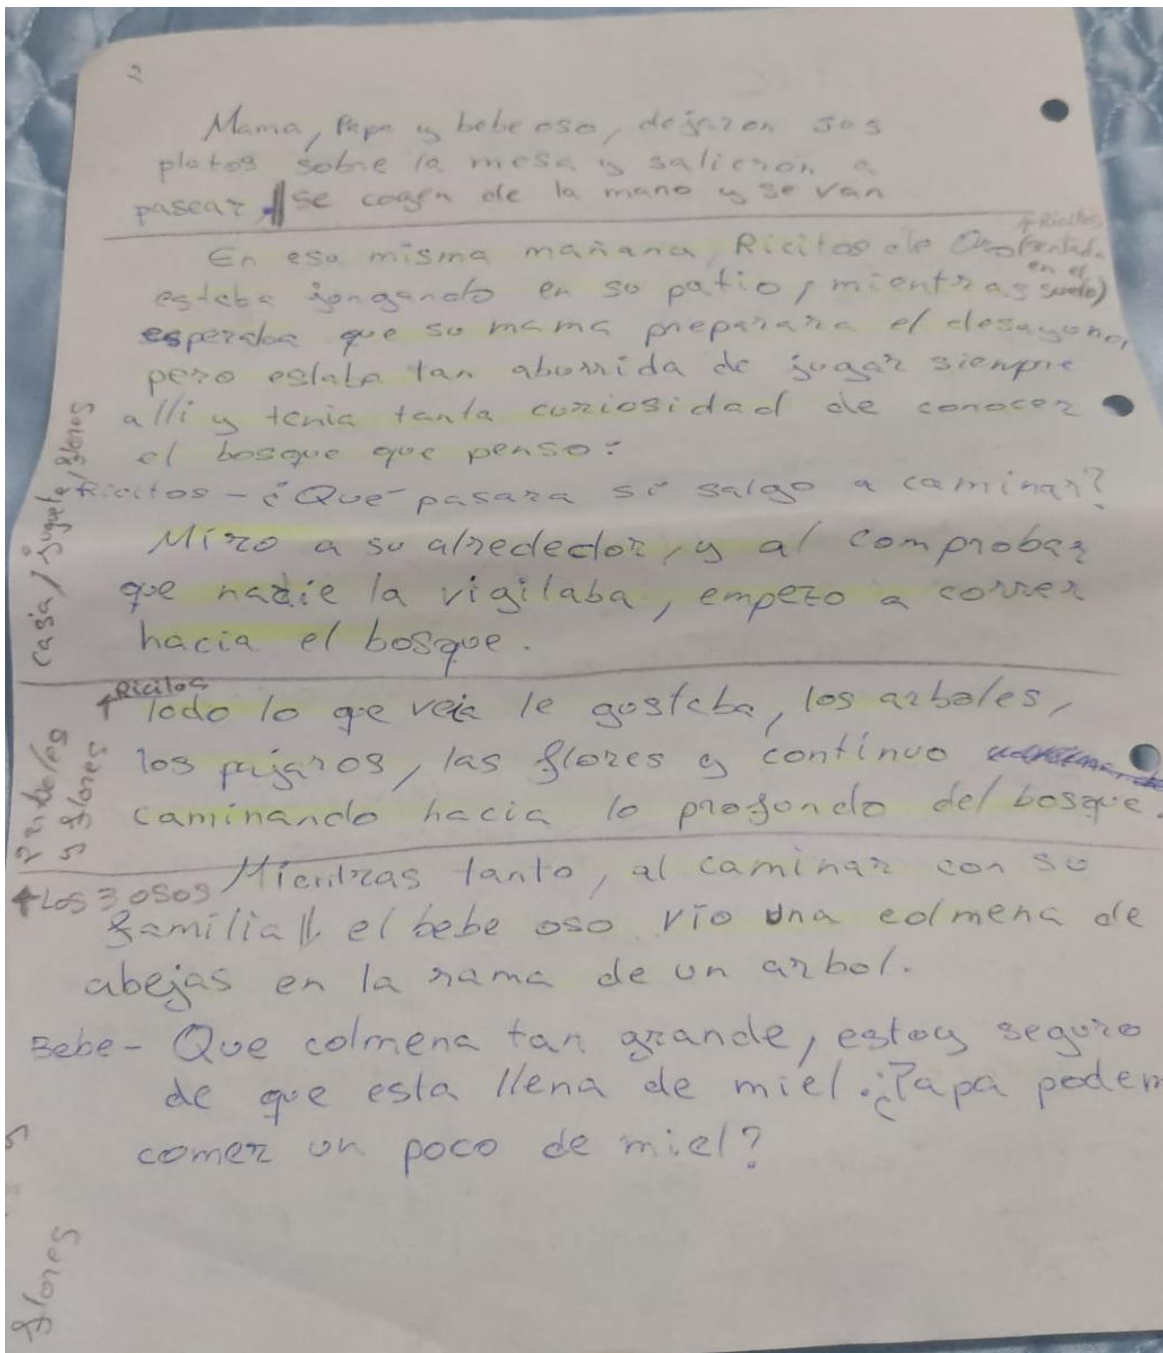 Mama, Papa y bebe oso, dejaron sus
platos sobre la mesa y salieron a
pasear, || se cogen de la mano y se van
↑ Ricitos
(sentada
en el
suelo)
En esa misma mañana, Ricitos de Oro
estaba jungando en su patio, mientras
esperaba que su mama preparara el desayuno,
pero estaba tan aburrida de jugar siempre
alli y tenia tanta curiosidad de conocer
el bosque que penso:
Ricitos - ¿Que pasara si salgo a caminar?
Miro a su alrededor, y al comprobar
que nadie la vigilaba, empezo a correr
hacia el bosque.
casa / juguete / flores
↑ Ricitos
Todo lo que veia le gustaba, los arboles,
los pajaros, las flores y continuo
caminando hacia lo profundo del bosque.
Arboles
y flores
↑ Los 3 osos
Mientras tanto, al caminar con su
familia || el bebe oso vio una colmena de
abejas en la rama de un arbol.
Bebe - Que colmena tan grande, estoy seguro
de que esta llena de miel. ¿Papa podem
comer un poco de miel?
flores